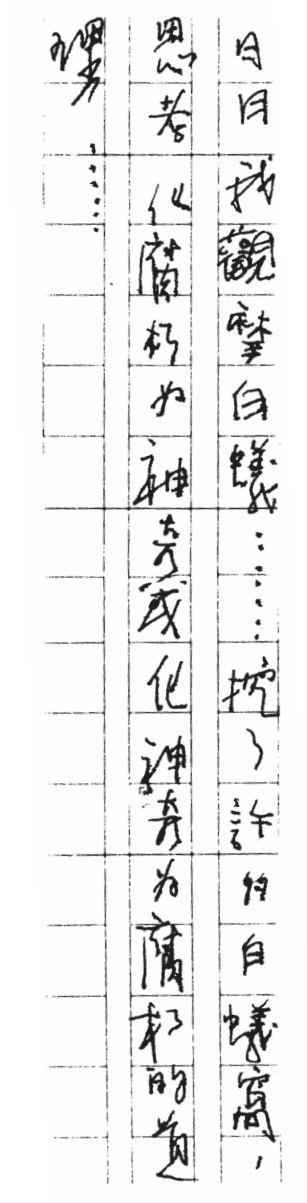 日日我觀察白蟻……挖了許多白蟻窩,
思考化腐朽為神奇或化神奇為腐朽的道
理……